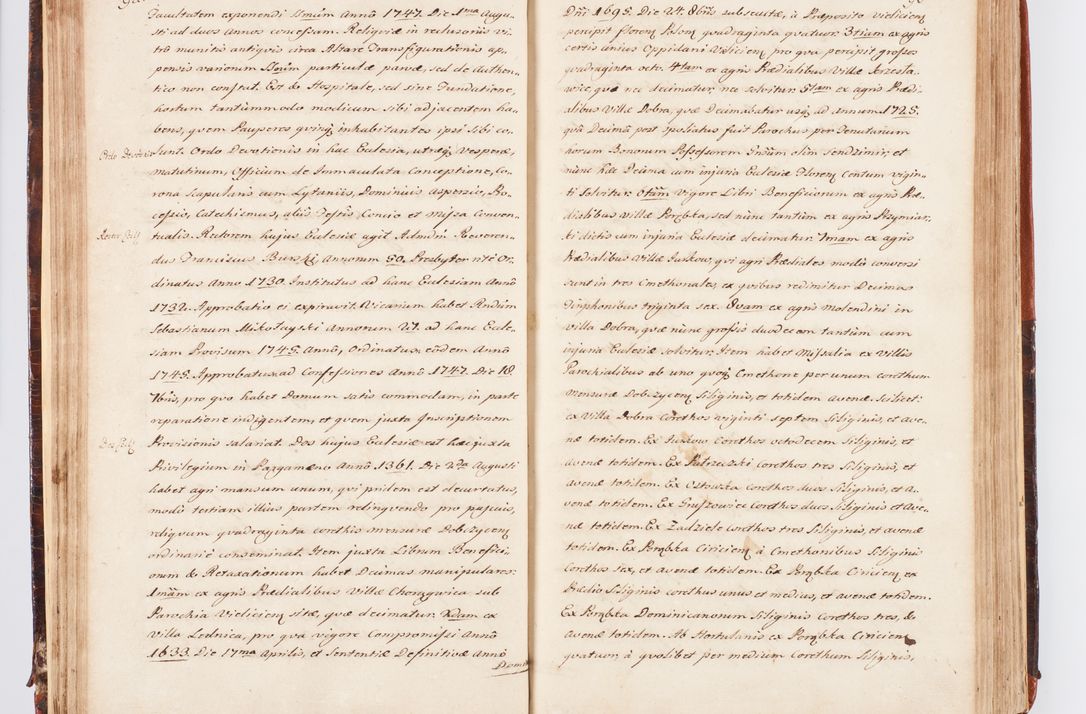 Facultatem exponendi SSmũm Annô 1747. Die 1ma Augu-
sti ad duos Annos concessam. Reliqviæ in reclusoriis vi-
trô munitis antiqvis circa Altare Transfigurationis ap-
pensis variorum SSrũm particulæ parvæ, sed de authen-
tico non constat. Est & Hospitale, sed sine Fundatione,
hortum tantummodo modicum sibi adjacentem ha-
bens, qvem Pauperes qvinq; inhabitantes ipsi sibi co-
Ordo Devotionis
lunt. Ordo Devotionis in hac Ecclesia, utræq; Vesperæ,
Matutinum, Officium de Immaculata Conceptione, Co-
rona Scapularis cum Lytaniis, Dominicis aspersio, Pro-
cessio, Catechismus, aliis Festis, Concio et Missa Conven-
Rector Eccl.
tualis. Rectorem hujus Ecclesiæ agit Admdũ Reveren-
dus Franciscus Burski Annorum 50. Presbyter ritè Or-
dinatus Anno 1730. Institutus ad hanc Ecclesiam Annô
1732. Approbatio ei expiravit. Vicarium habet Rndũm
Sebastianum Mikołayski Annorum 27. ad hanc Eccle-
siam Provisum 1745. Annô, Ordinatus eôdem Annô
1745. Approbatus ad Confessiones Annô 1747. Die 18
7bris, pro qvo habet Domum satis commodam, in parte
reparatione indigentem, et qvem juxta Inscriptionem
Dos Eccl.
Provisionis salariat. Dos hujus Ecclesiæ est hæc juxta
Privilegium in Pargameno Annô 1361. Die 2da Augusti
habet agri mansum unum, qvi pridem est decurtatus,
modò tertiam illius partem relinqvendo pro pascuis,
reliqvum qvadraginta corethis mensuræ Dobczycen̄
ordinariè conseminat. Item juxta Librum Benefici-
orum & Retaxationum habet Decimas manipulares:
1mam ex agris Prædialibus Villæ Chorągwica sub
Parochia Vieliciem̄ sitæ, qvæ decimatur. 2dam ex
Villa Lednica, pro qva vigore Compromissi Annô
1633. Die 17ma Aprilis, et Sententiæ Definitivæ Annô
Domi
Dñi 1695. Die 24. 8bris subsecutæ, à Præposito Vieliciem̄
percipit florem̄ Polon̄ qvadraginta qvatuor. 3tiam ex agris
certis unius Oppidani Vielicien̄, pro qva percipit grossos
qvadraginta octo. 4tam ex agris Prædialibus Villæ Jerzesla-
wic, qvæ nec decimatur, nec solvitur. 5tam ex agris Prædi-
alibus Villæ Dobra, qvæ Decimabatur usq; ad Annum 1725.
qvâ Decimâ post spoliatus fuit Parochus per Tenutarium
horum Bonorum Possessorem Gnsũm olim Sendzimir, et
nunc hæc Decima cum injuria Ecclesiæ florem̄ Centum vigin-
ti solvitur. 6tam Vigore Libri Beneficiorum ex agris Præ-
dialibus Villæ Porąbka, sed nunc tantùm ex agris Przymiar-
ki dictis cum injuria Ecclesiæ decimatur. 7mam ex agris
Prædialibus Villæ Juszow, qvi agri Prædiales modò conversi
sunt in tres Cmethonales, ex qvibus redimitur Decimas
Tinphonibus triginta sex. 8vam ex agris molendini in
Villa Dobra, qvæ nunc grossis duodecem tantùm cum
injuria Ecclesiæ solvitur. Item habet Missalia ex Villis
Parochialibus ab uno qvoq; Cmethone per unum corethum
Mensuræ Dobczycen̄ Siliginis, et totidem avenæ. Scilicet:
ex Villa Dobra Corethos viginti septem Siliginis, et ave-
næ totidem. Ex Juszow Corethos octodecem Siliginis, et
avenæ totidem. Ex Putrzeczki Corethos tres Siliginis, et
avenæ totidem. Ex Ostowka Corethos duos Siliginis, et a-
venæ totidem. Ex Gruszowiec Corethos duos Siliginis et ave-
næ totidem. Ex Zadziele Corethos tres Siliginis, et avenæ
totidem. Ex Porąbka Ciricien̄ à Cmethonibus Siliginis
Corethos sex, et avenæ totidem. Ex Porąbka Ciricien̄ ex
Prædio Siliginis corethus unus et medius, et avenæ totidem.
Ex Porąbka Dominicanorum Siliginis Corethos tres, &
avenæ totidem. Ab Hortulanis ex Porąbka Ciricien̄
qvatuor, à qvolibet per medium Corethum Siliginis,